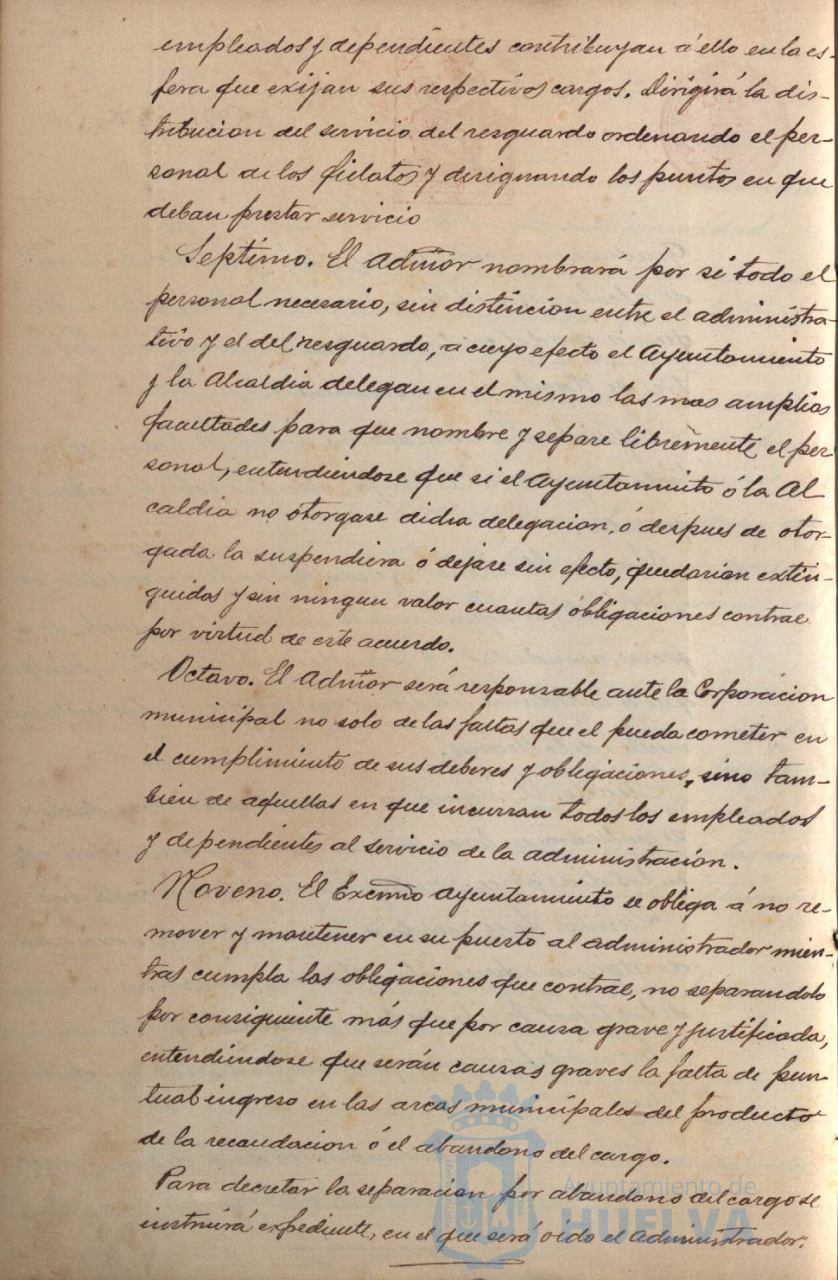 empleados y dependientes contribuyan á ello en la es-
fera que exijan sus respectivos cargos. Dirigirá la dis-
tribucion del servicio del resguardo ordenando el per-
sonal de los fielatos y designando los puntos en que
deban prestar servicio
Septimo. El Admor nombrará por si todo el
personal necesario, sin distincion entre el administra-
tivo y el del resguardo, a cuyo efecto el Ayuntamiento
y la Alcaldia delegan en el mismo las mas amplias
facultades para que nombre y separe libremente el per
sonal, entendiendose que si el Ayuntamiento ó la Al
caldia no otorgase dicha delegacion, ó despues de otor-
gada la suspendiera ó dejare sin efecto, quedarian extin-
guidas y sin ningun valor cuantas obligaciones contrae
por virtud de este acuerdo.
Octavo. El Admor será responsable ante la Corporacion
municipal no solo de las faltas que el pueda cometer en
el cumplimiento de sus deberes y obligaciones, sino tam-
bien de aquellas en que incurran todos los empleados
y dependientes al servicio de la administración.
Noveno. El Excmo Ayuntamiento se obliga á no re-
mover y mantener en su puesto al administrador mien-
tras cumpla las obligaciones que contrae, no separandolo
por consiguiente más que por causa grave y justificada,
entendiendose que serán causas graves la falta de pun
tual ingreso en las arcas municipales del producto
de la recaudacion ó el abandono del cargo.
Para decretar la separacion por abandono del cargo se
instruirá expediente, en el que será oido el administrador.
Ayuntamiento de
HUELVA